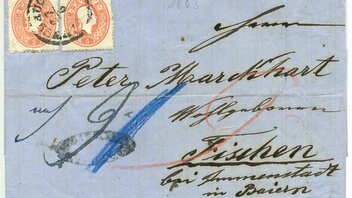 1863
Herrn
Peter Marckhart
Wohlgeboren
Fischen
bei Immenstadt
in Baiern